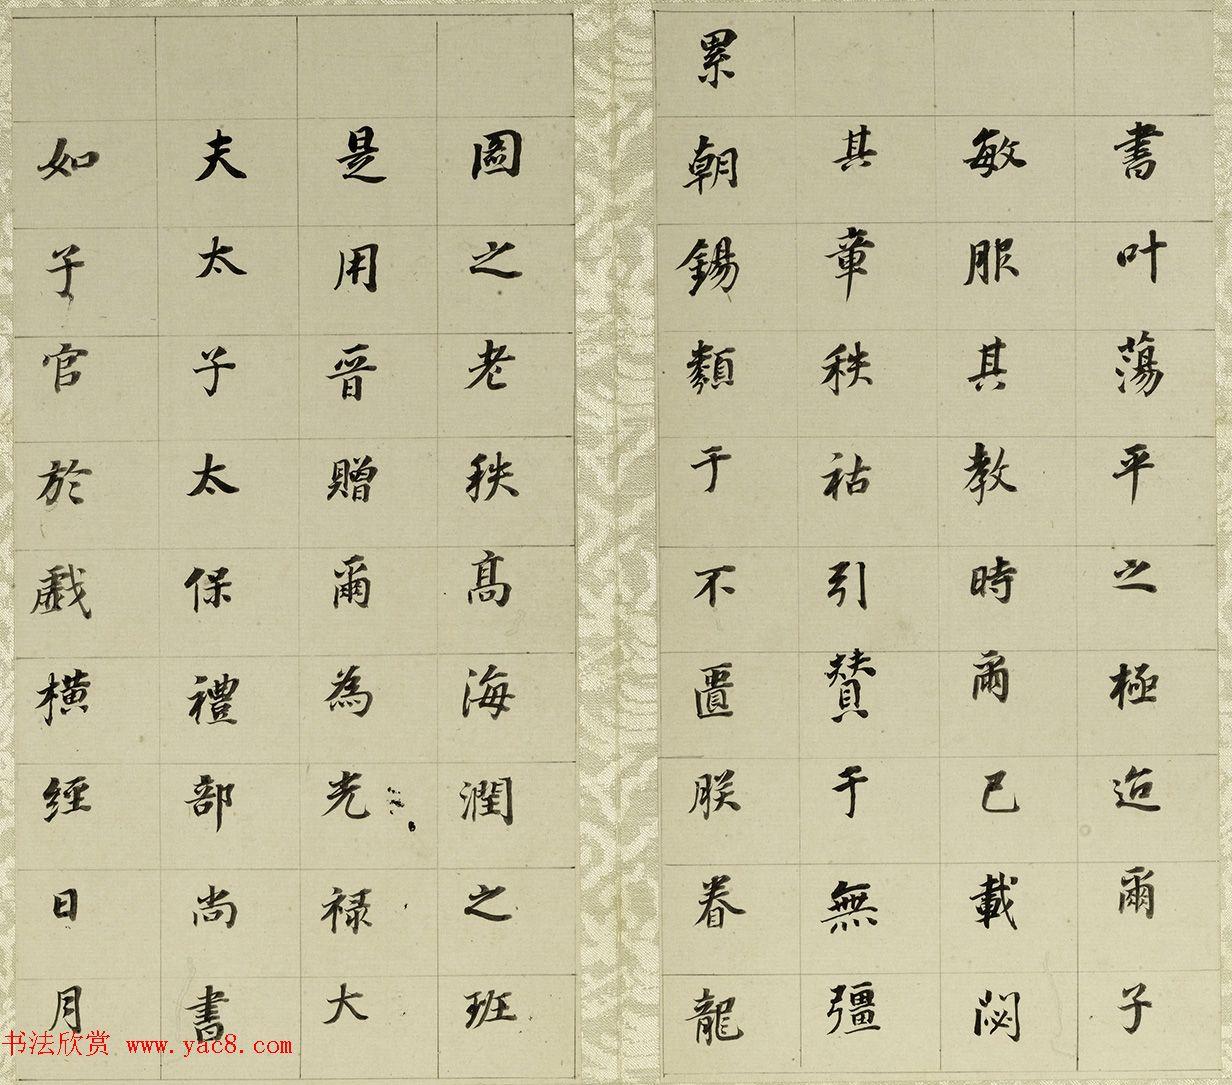 書叶蕩平之極迨爾子
敏服其教時爾已載閟
其章秩祜引贊于無彊
累朝錫類于不匱朕眷龍
圖之老秩高海潤之班
是用晉贈爾為光祿大
夫太子太保禮部尚書
如子官於戲橫經日月
书法欣赏 www.yac8.com